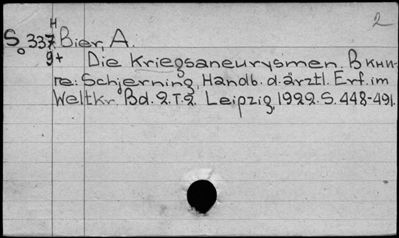 2
H
So 337 Bier, A.
9+ Die Kriegsaneurysmen. В кни-
ге: Schjerning, Handb. d. ärztl. Erf. im
Weltkr. Bd. 2. T. 2. Leipzig, 1922. S. 448-491.